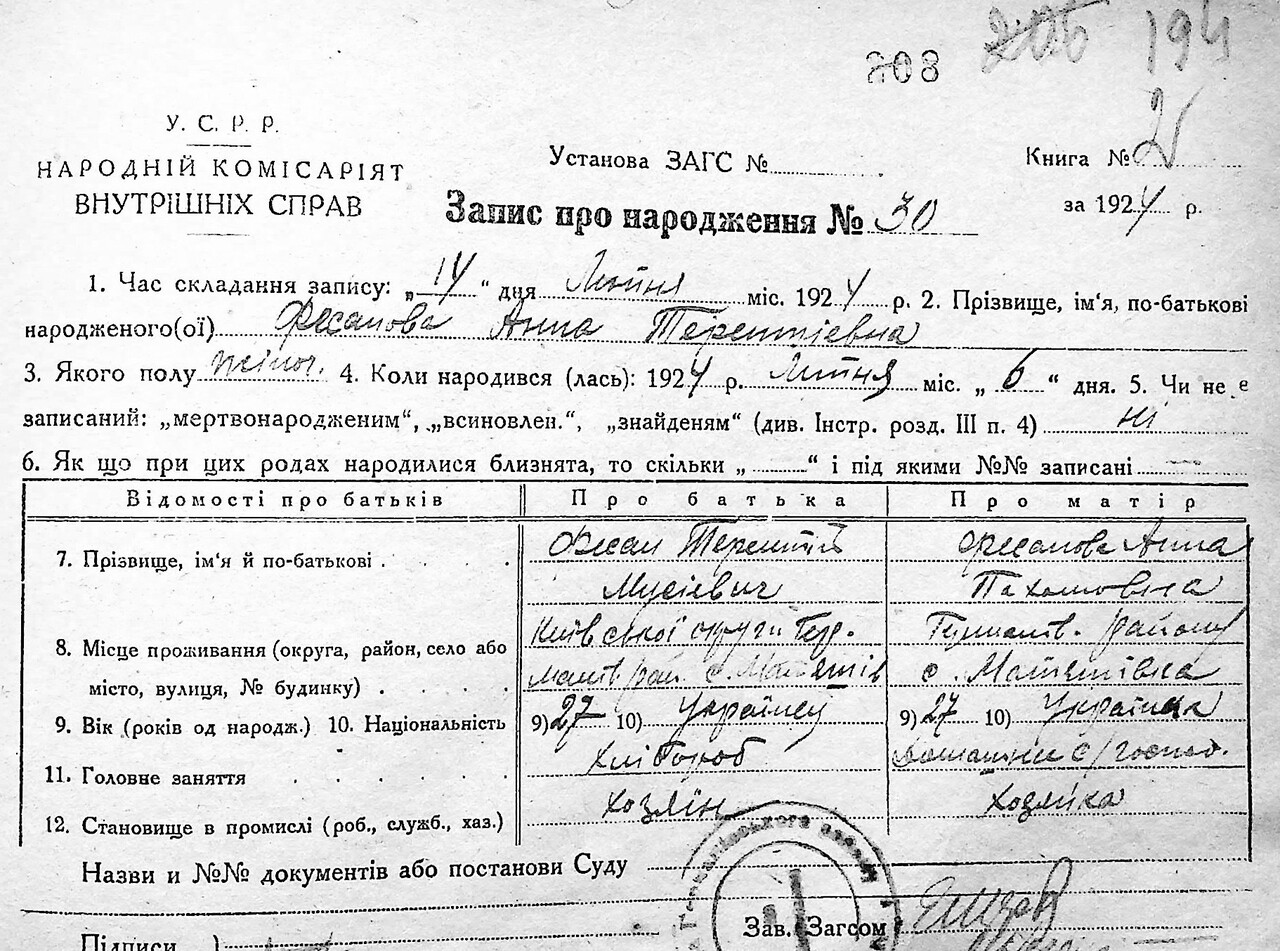 208 205 194
У. С. Р. Р.
НАРОДНІЙ КОМІСАРІЯТ
ВНУТРІШНІХ СПРАВ
Установа ЗАГС №
Книга № 2
за 1924 р.
Запис про народження № 30
1. Час складання запису: „14“ дня Лютня міс. 1924 р. 2. Прізвище, ім'я, по-батькові
народженого(ої) Фесанова Анна Терентіевна
3. Якого полу жіноч. 4. Коли народився (лась): 1924 р. Лютня міс. „6“ дня. 5. Чи не є
записаний: „мертвонародженим“, „всиновлен.“, „знайденям“ (див. Інстр. розд. III п. 4) ні
6. Як що при цих родах народилися близнята, то скільки „ “ і під якими №№ записані —
Відомості про батьків Про батька Про матір
7. Прізвище, ім'я й по-батькові Фесан Терентій Фесанова Анна
Мусіевич Пахомовна
8. Місце проживання (округа, район, село або Київської округи району
місто, вулиця, № будинку) с. с.
9. Вік (років од народж.) 10. Національність 9) 27 10) Українец 9) 27 10) Українка
11. Головне заняття Хлібороб с/господ.
12. Становище в промислі (роб., служб., хаз.) Хозяїн Хозяйка
Назви и №№ документів або постанови Суду
Зав. Загсом
Підписи